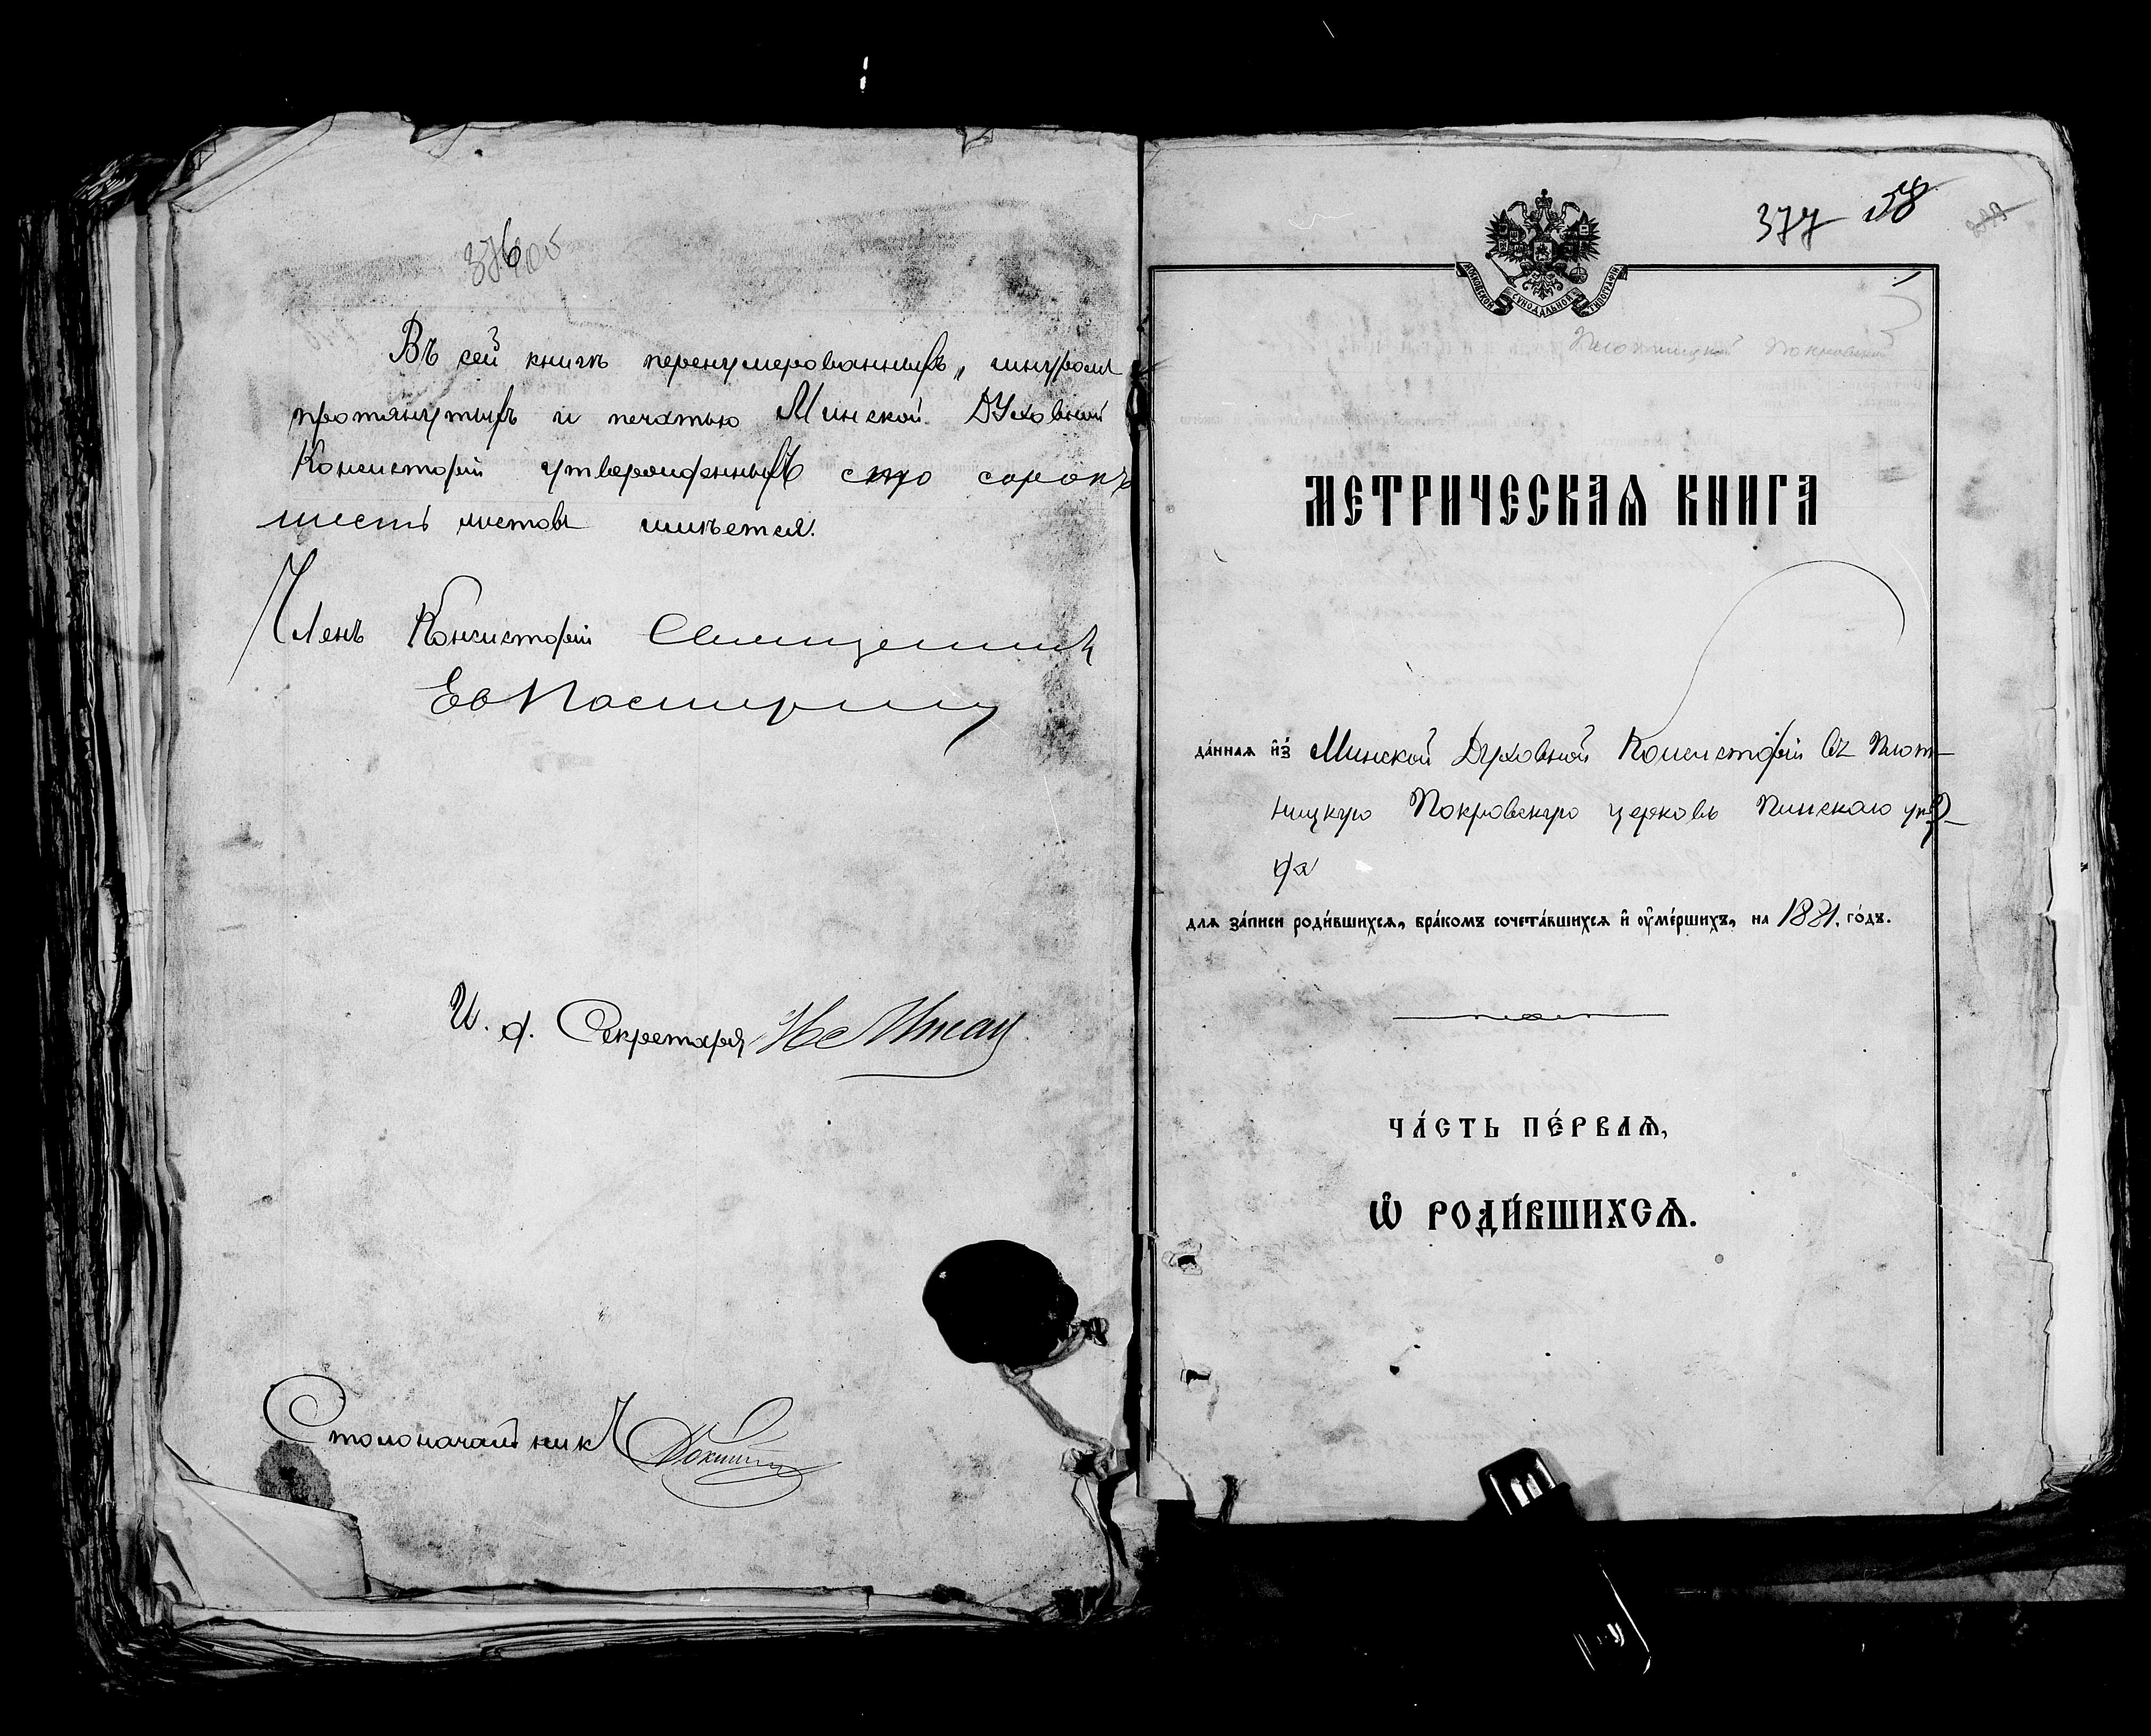 376
Въ сей книгѣ перенумерованныхъ, шнуромъ
протянутыхъ и печатью Минской Духовной
Консисторіи утвержденныхъ сто сорокъ
шесть листовъ имѣется.
Членъ Консисторіи Священникъ
И. д. Секретаря
Столоначальникъ
377 58
МОСКОВСКОЙ СѴНОДАЛЬНОЙ ТИПОГРАФІИ
1
Плотницкой Покровской
МЕТРИЧЕСКАѦ КНИГА
да́ннаѧ и҆з̾ Минской Духовной Консисторіи въ Плот-
ницкую Покровскую церковь Пинскаго уѣз-
да
длѧ за́писи роди́вшихсѧ, бра́комъ сочета́вшихсѧ и҆ ᲂу҆ме́ршихъ, на 1881. го́дъ.
ЧА́СТЬ ПЕ́РВАѦ,
Ѽ РОДИ́ВШИХСѦ.